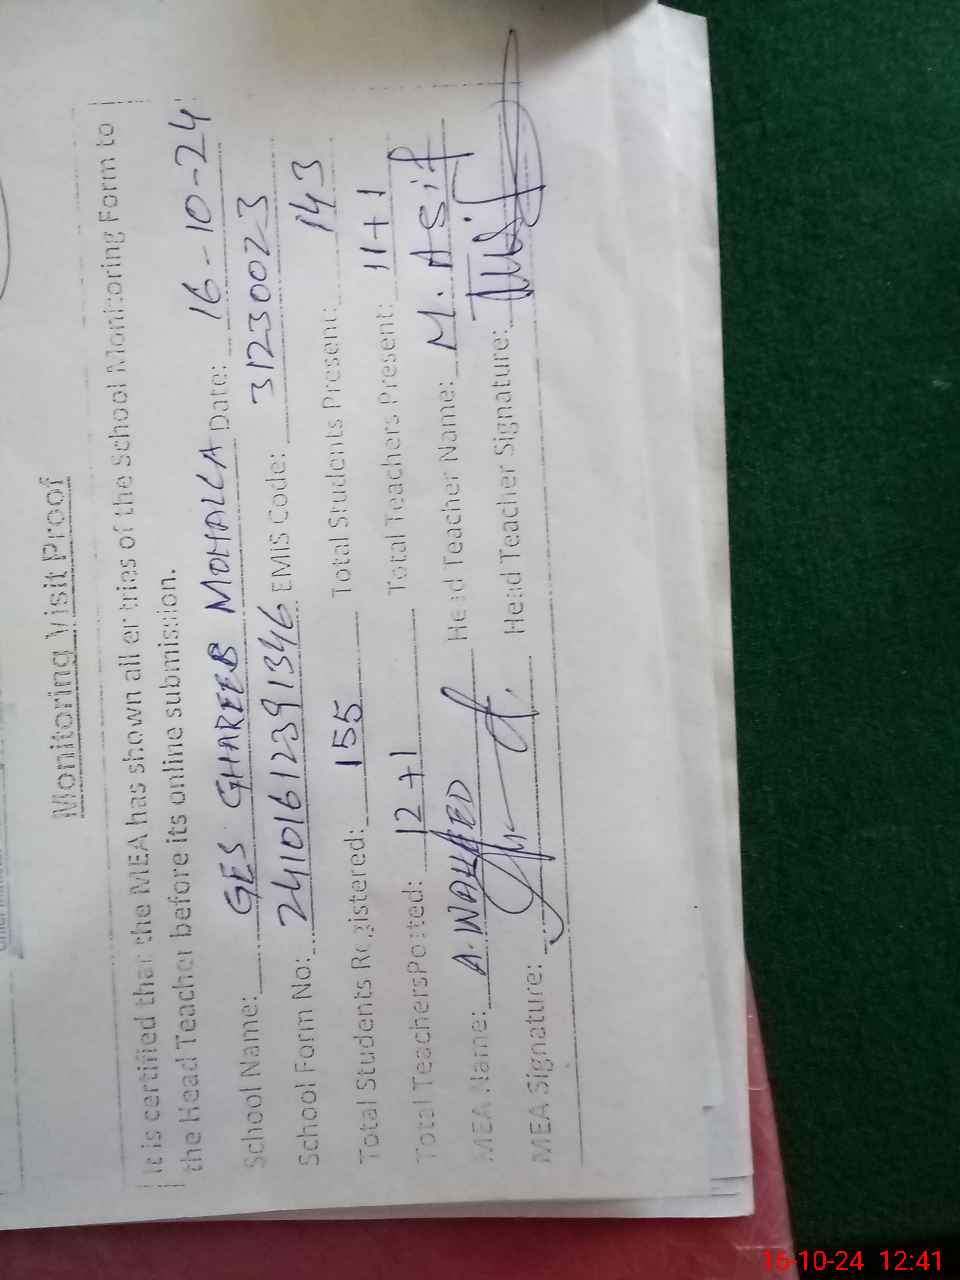 Monitoring Visit Proof
It is certified that the MEA has shown all entries of the School Monitoring Form to
the Head Teacher before its online submission.
School Name: GES GHAREEB MOHALLA Date: 16-10-24
School Form No: 24101612391346 EMIS Code: 31230023
Total Students Registered: 155 Total Students Present: 143
Total Teachers Posted: 12+1 Total Teachers Present: 11+1
MEA Name: A. WAHEED Head Teacher Name: M. Asif
MEA Signature: Head Teacher Signature:
16-10-24 12:41